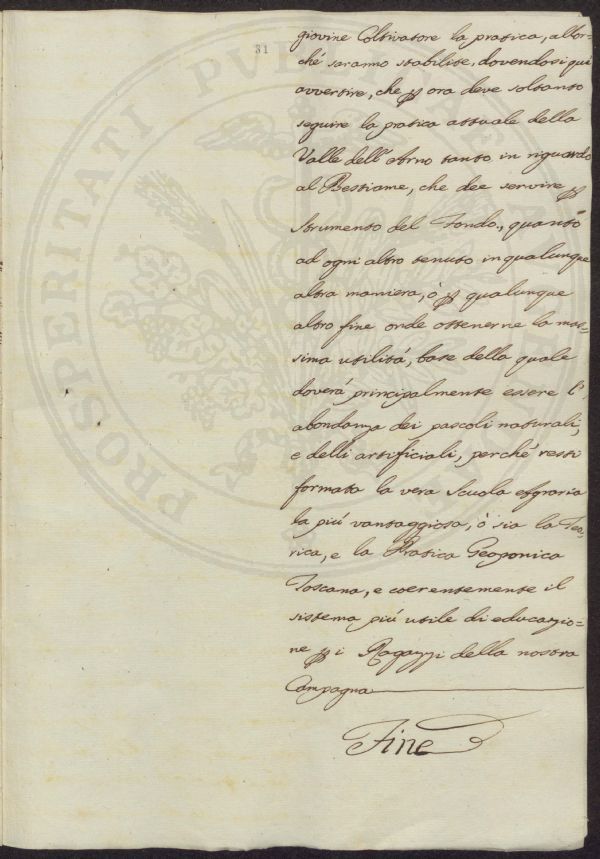 31
giovine Coltivatore la pratica, allor-
ché saranno stabilite, dovendosi qui
avvertire, che ꝑ ora deve soltanto
seguire la pratica attuale della
Valle dell'Arno tanto in riguardo
al Bestiame, che dee servire ꝑ
Strumento del Fondo, quanto
ad ogni altro tenuto in qualunque
altra maniera, ò ꝑ qualunque
altro fine onde ottenerne la mas=
sima utilità, base della quale
doverà principalmente essere l'
abondanza dei pascoli naturali,
e delli artificiali, perché resti
formata la vera Scuola Agraria
la più vantaggiosa, ò sia la Teo=
rica, e la Pratica Geoponica
Toscana, e coerentemente il
sistema più utile di educazio=
ne ꝑ i Ragazzi della nostra
Campagna
Fine
PROSPERITATI PUBLICAE AUGENDAE